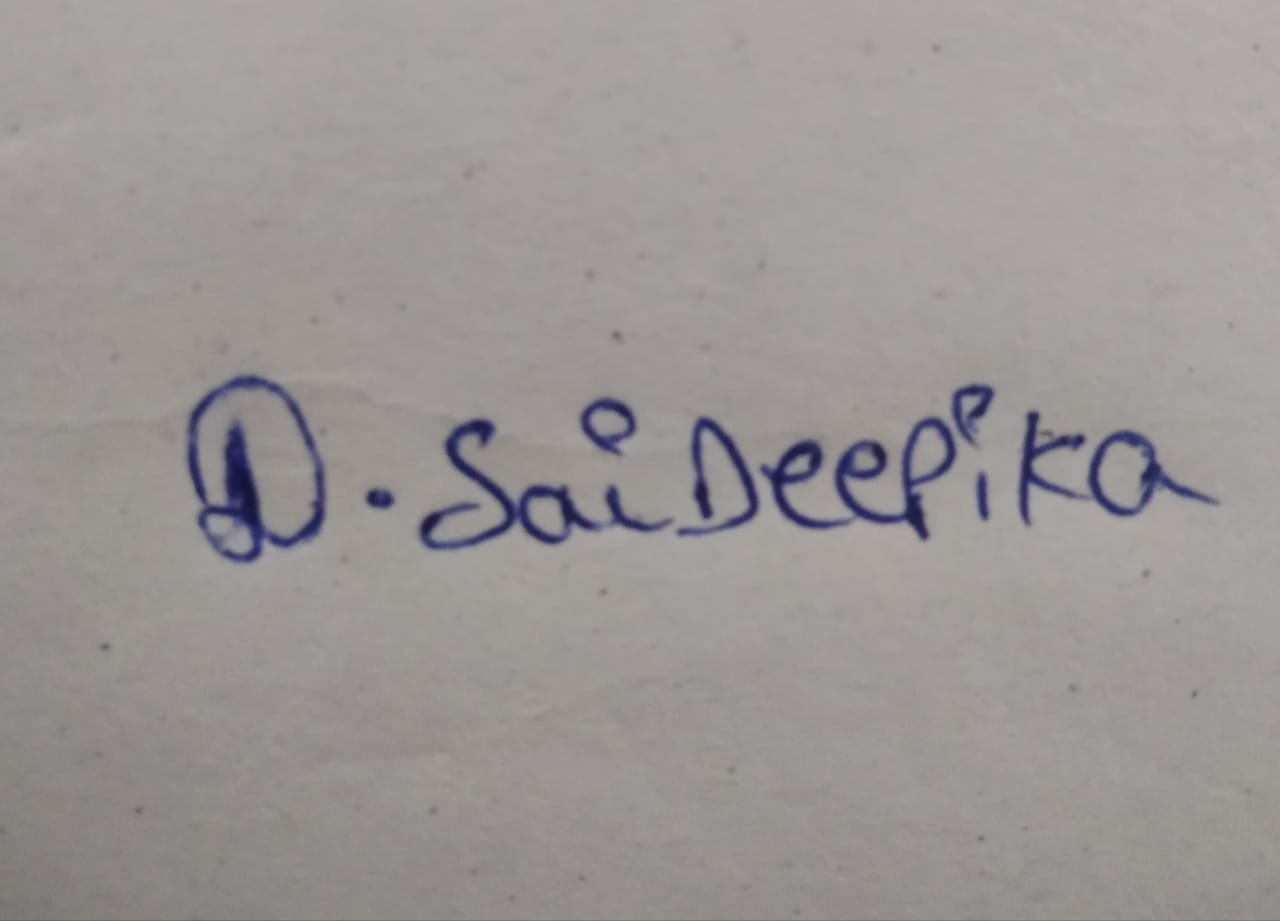 D. Sai Deepika